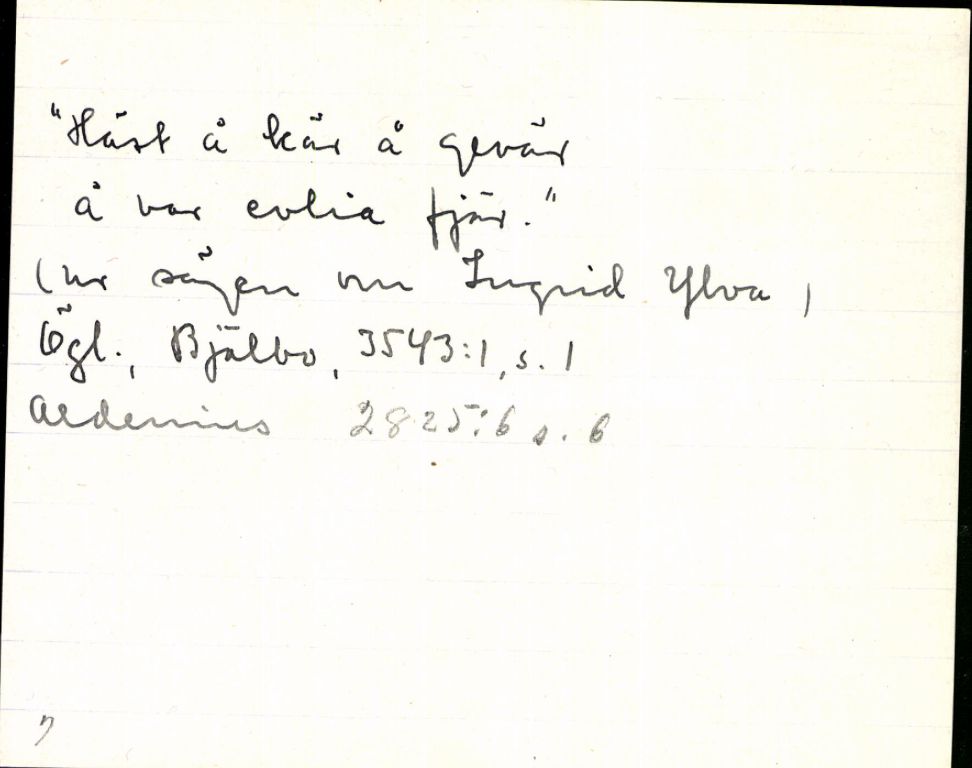 "Häst å kär å gevär
å var evlia fjär."
(ur sägen om Ingrid Ylva)
Ögl., Bjälbo, 3543:1, s. 1
Aldenius 2825:6 s. 6